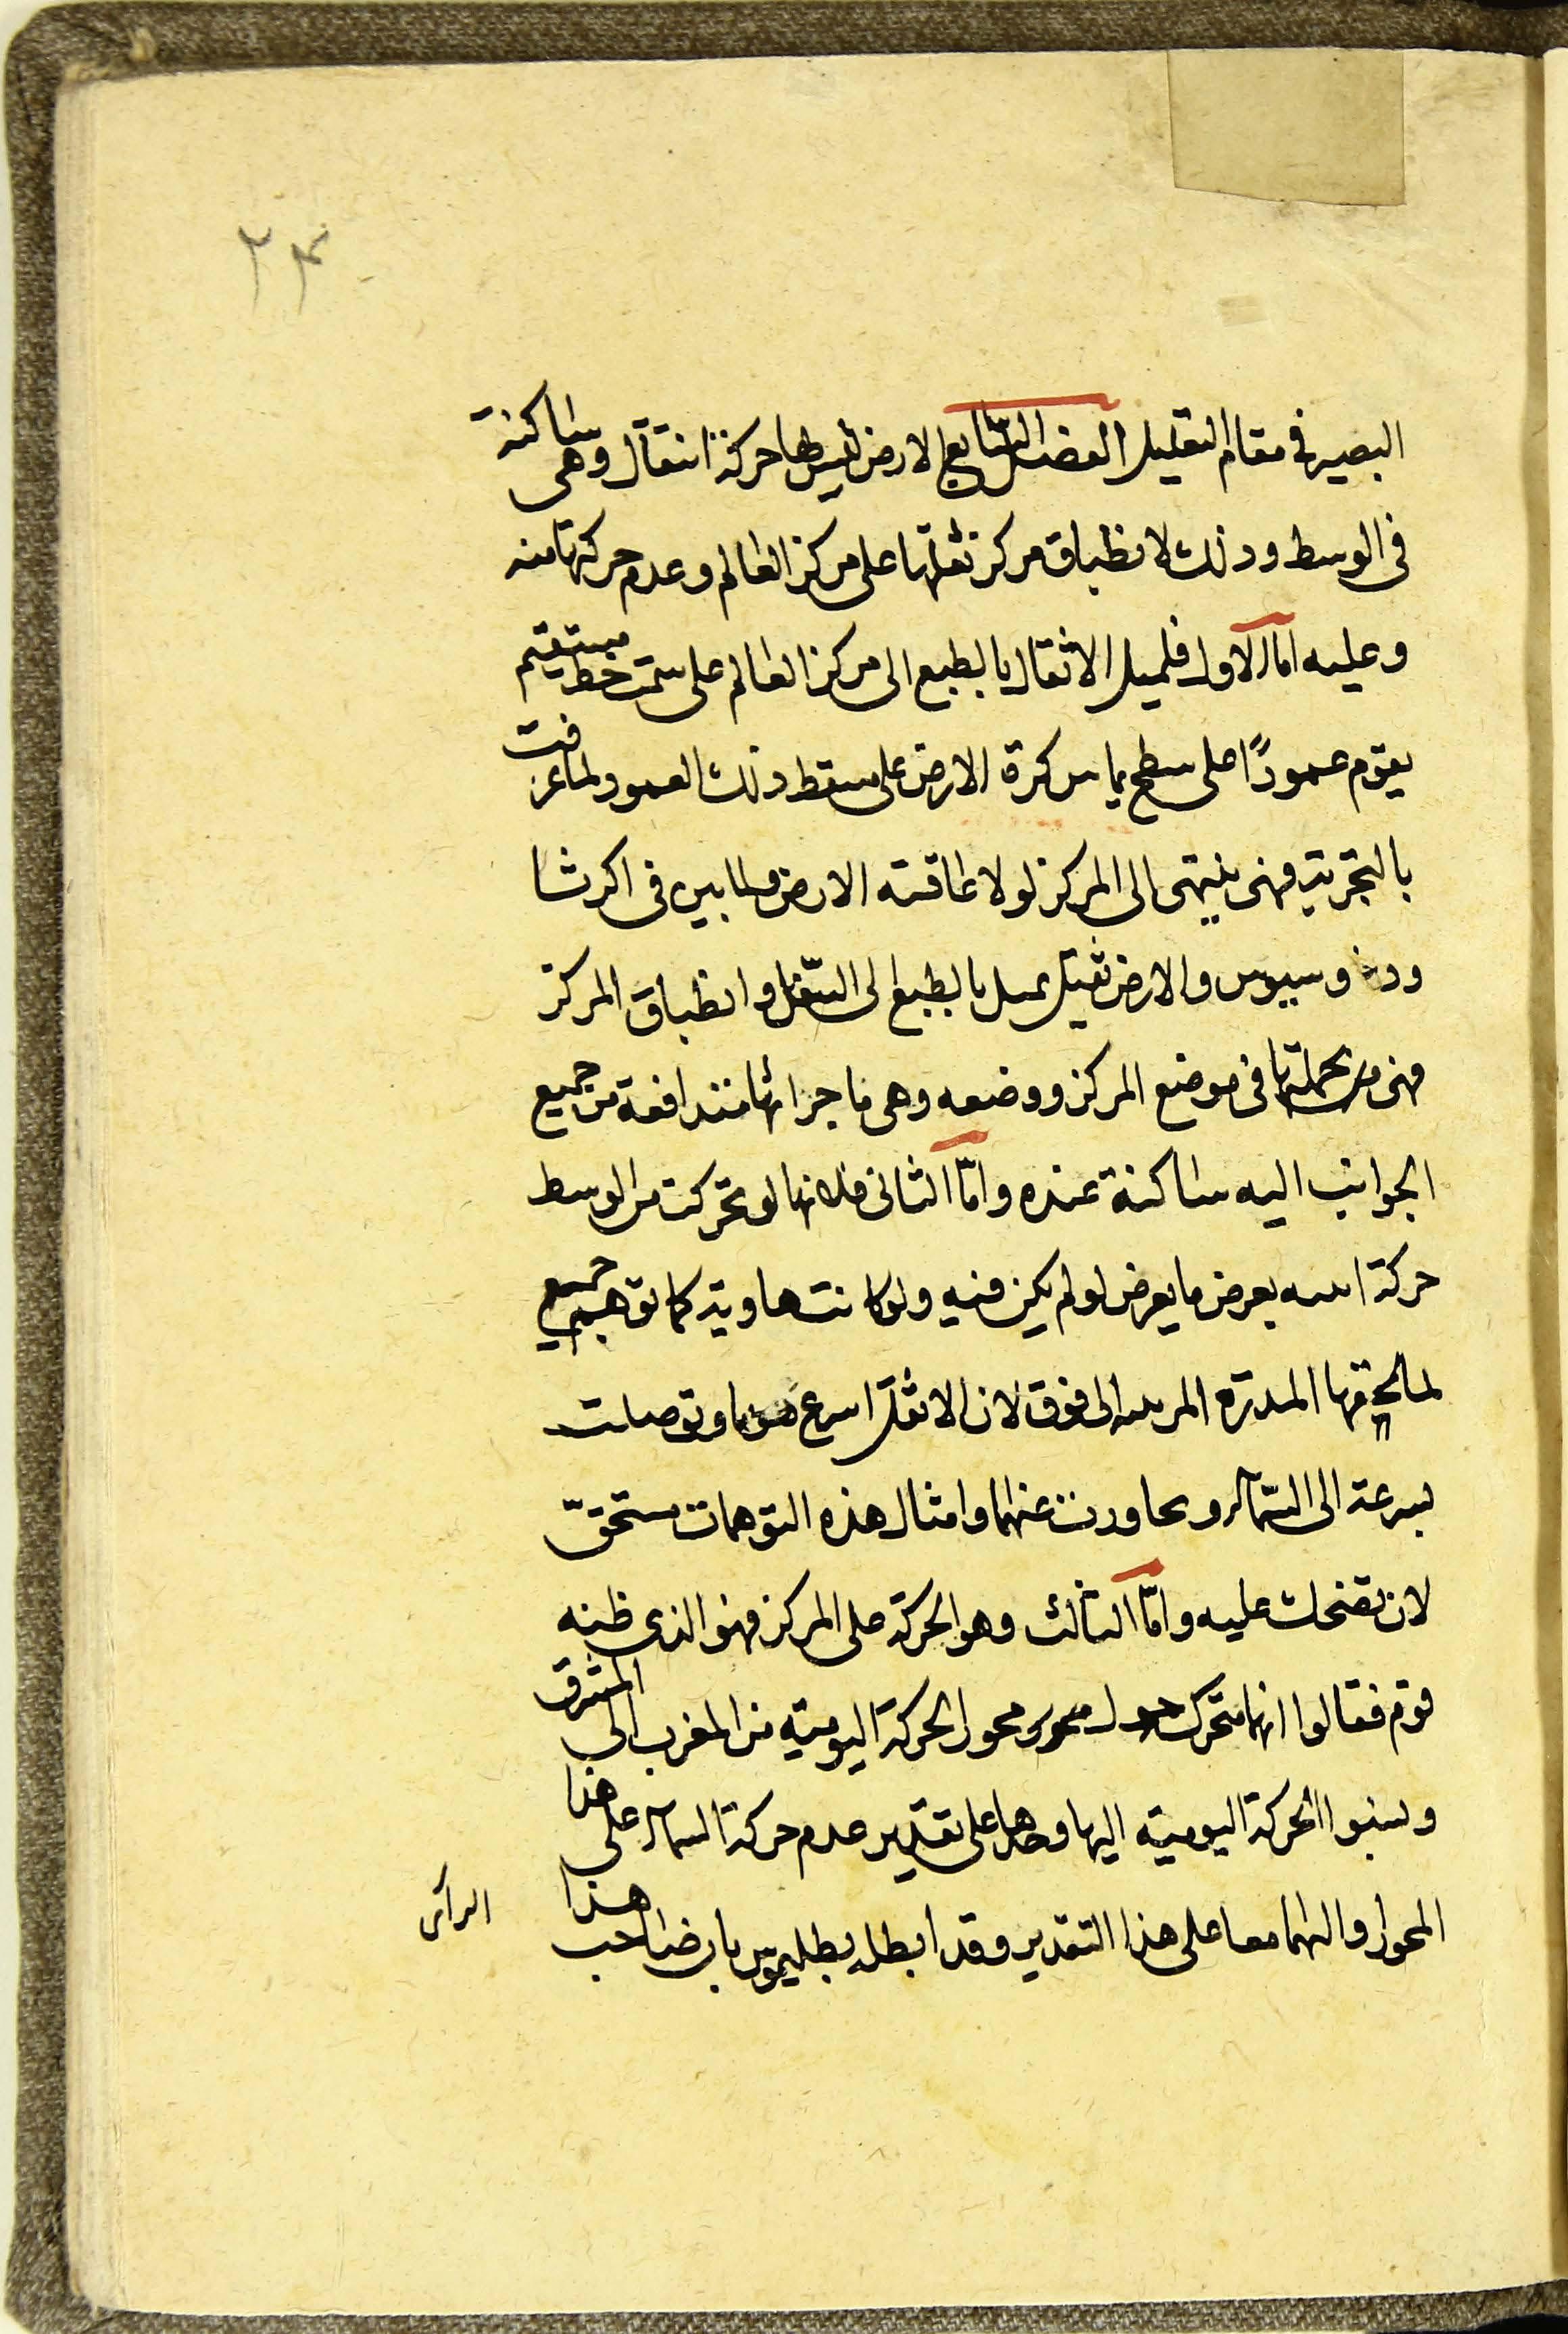 ٢٣
البصير فى مقام التعليل الفصل السابع الارض ليس لها حركة انتقال وهى ساكنة
فى الوسط وذلك لانطباق مركز ثقلها على مركز العالم وعدم حركتها منه
وعليه اما الاول فلميل الاثقال بالطبع الى مركز العالم على سمت خط مستقيم
يقوم عمودًا على سطح يماس كرة الارض على مسقط ذلك العمود لما عرفت
بالتجربة فهى ينتهى الى المركز لولا عاقته الارض ولما بين فى اكر ثا
ودوسيوس والارض ثقيل يميل بالطبع الى السّفل وانطباق المركز
فهى بجملتها فى موضع المركز ووضعه وهى باجزائها متدافعة من جميع
الجوانب اليه ساكنة عنده وامّا الثانى فلانها لو تحركت من الوسط
حركة اينية يعرض ما يعرض لو لم يكن فيه ولو كانت هاوية كما توهم جميع
لما لحقتها المدرة المرمية الى فوق لان الاثقل اسرع هويا وتوصلت
بسرعة الى السّماء وجاوزت عنها وامثال هذه التوهمات مستحقّ
لان يضحك عليه وامّا الثالث وهو الحركة على المركز فهو الذى ظنه
قوم فقالوا انها متحرك حول محور الحركة اليومية من المغرب الى المشرق
ونسبوا الحركة اليومية اليها وحدها على تقدير عدم حركة السماء على هذا
المحور او اليهما معا على هذا التقدير وقد ابطله بطليموس بان صاحب هذا
الرأى